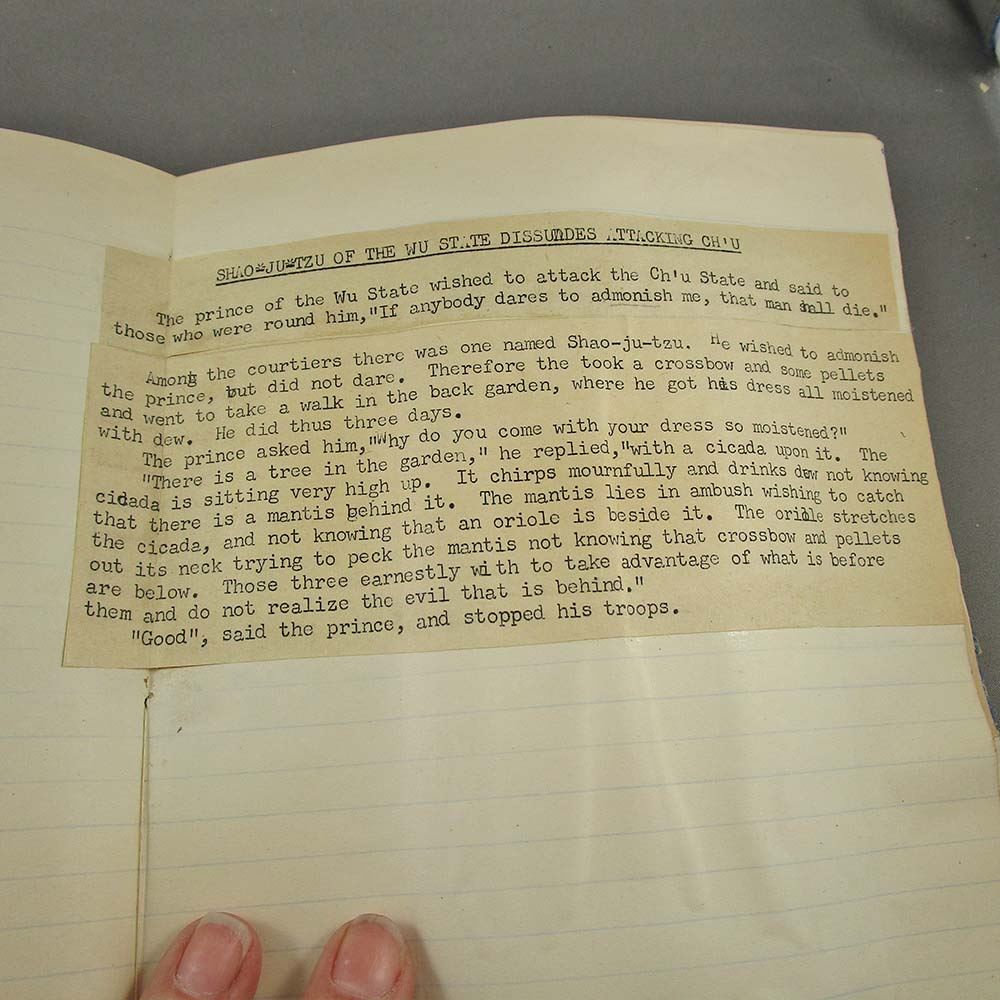 SHAO-JU-TZU OF THE WU STATE DISSUADES ATTACKING CH'U
The prince of the Wu State wished to attack the Ch'u State and said to
those who were round him,"If anybody dares to admonish me, that man shall die."
Among the courtiers there was one named Shao-ju-tzu. He wished to admonish
the prince, but did not dare. Therefore the took a crossbow and some pellets
and went to take a walk in the back garden, where he got his dress all moistened
with dew. He did thus three days.
The prince asked him,"Why do you come with your dress so moistened?"
"There is a tree in the garden," he replied,"with a cicada upon it. The
cicada is sitting very high up. It chirps mournfully and drinks dew not knowing
that there is a mantis behind it. The mantis lies in ambush wishing to catch
the cicada, and not knowing that an oriole is beside it. The oriole stretches
out its neck trying to peck the mantis not knowing that crossbow and pellets
are below. Those three earnestly with to take advantage of what is before
them and do not realize the evil that is behind."
"Good", said the prince, and stopped his troops.